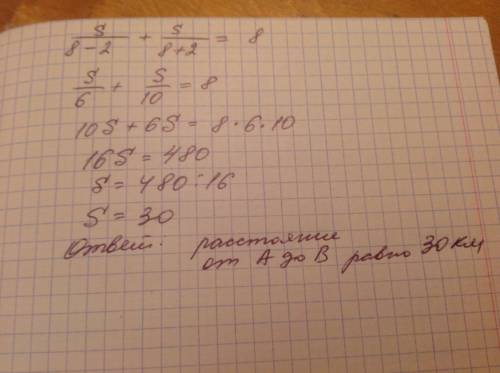 S/(8-2) + S/(8+2) = 8
S/6 + S/10 = 8
10S + 6S = 8·6·10
16S = 480
S = 480:16
S = 30
Ответ: расстояние
от А до В равно 30 км